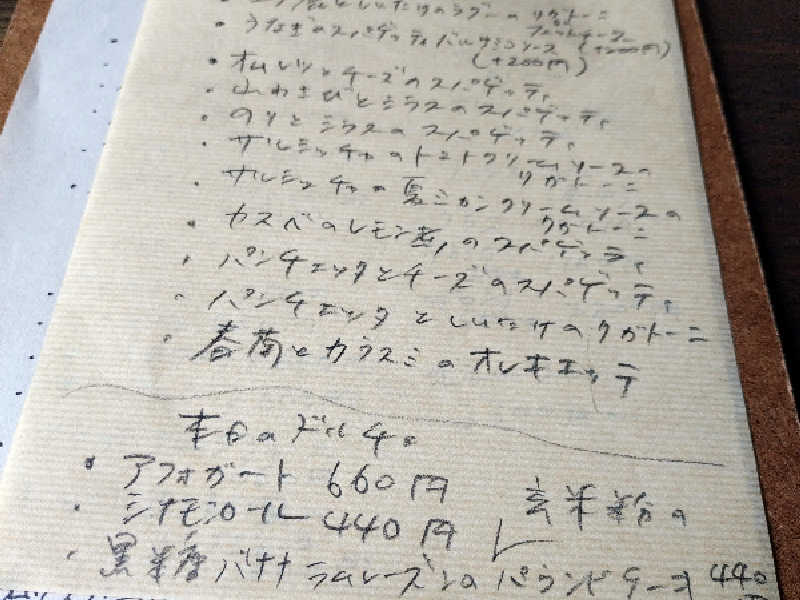 しいたけのラグーのリガトーニ
・うなぎのスパゲッティバルサミコソース (+200円)
(+200円)
・オムレツとチーズのスパゲッティ
・山わさびとシラスのスパゲッティ
・のりとシラスのスパゲッティ
・サルシッチャのトマトクリームソースの
リガトーニ
・サルシッチャの夏ミカンクリームソースの
リガトーニ
・カスベのレモン煮のスパゲッティ
・パンチェッタとチーズのスパゲッティ
・パンチェッタとしいたけのリガトーニ
・春菊とカラスミのオレキエッテ
本日のドルチェ
・アフォガート 660円
・シナモンロール 440円
玄米粉の
・黒糖バナナラムレーズンのパウンドケーキ 440